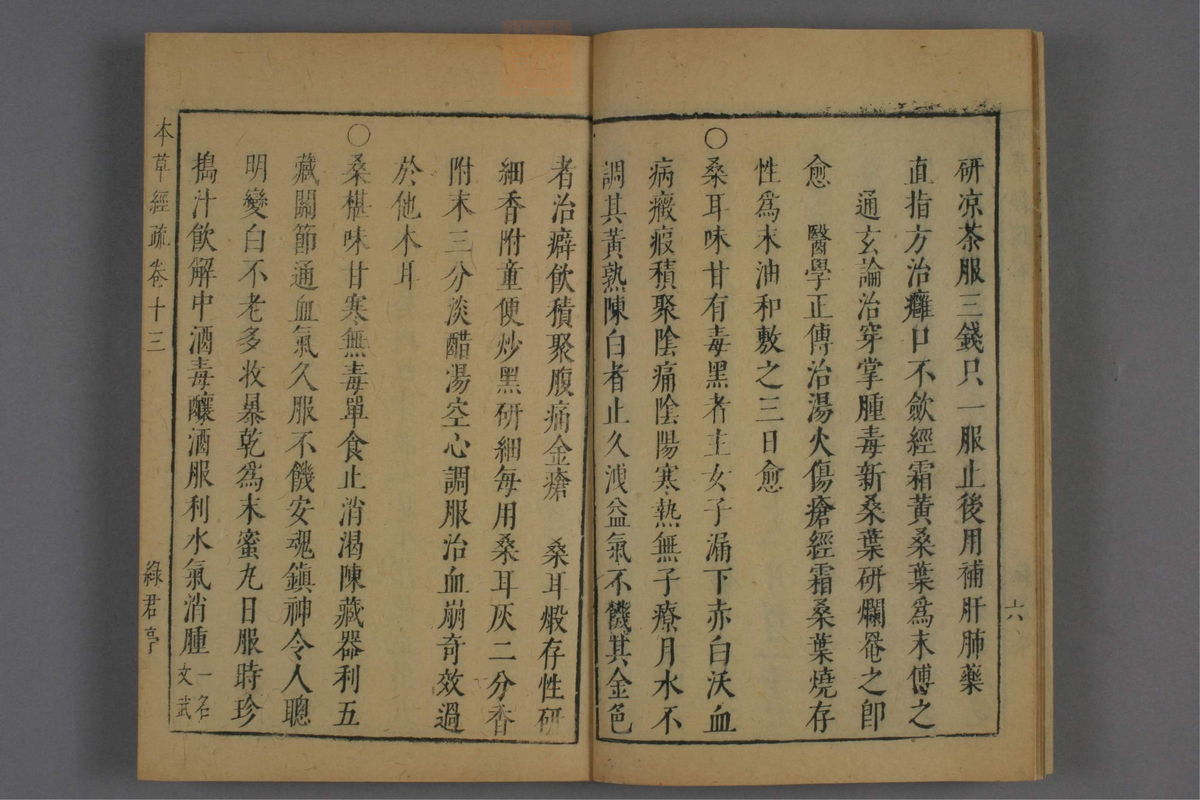 研凉茶服三錢只一服止後用補肝肺藥
直指方治癰口不歛經霜黃桑葉爲末傅之
通玄論治穿掌腫毒新桑葉研爛罨之卽
愈　醫學正傳治湯火傷瘡經霜桑葉燒存
性爲末油和敷之三日愈
○桑耳味甘有毒黑者主女子漏下赤白沃血
病癥瘕積聚陰痛陰陽寒熱無子療月水不
調其黃熟陳白者止久洩益氣不饑其金色
六
者治癖飮積聚腹痛金瘡　桑耳煅存性研
細香附童便炒黑研細每用桑耳灰二分香
附末三分淡醋湯空心調服治血崩奇效過
於他木耳
○桑椹味甘寒無毒單食止消渴陳藏器利五
藏關節通血氣久服不饑安魂鎭神令人聰
明變白不老多收暴乾爲末蜜丸日服時珍
搗汁飮解中酒毒釀酒服利水氣消腫一名
文武
本草經疏卷十三
綠君亭